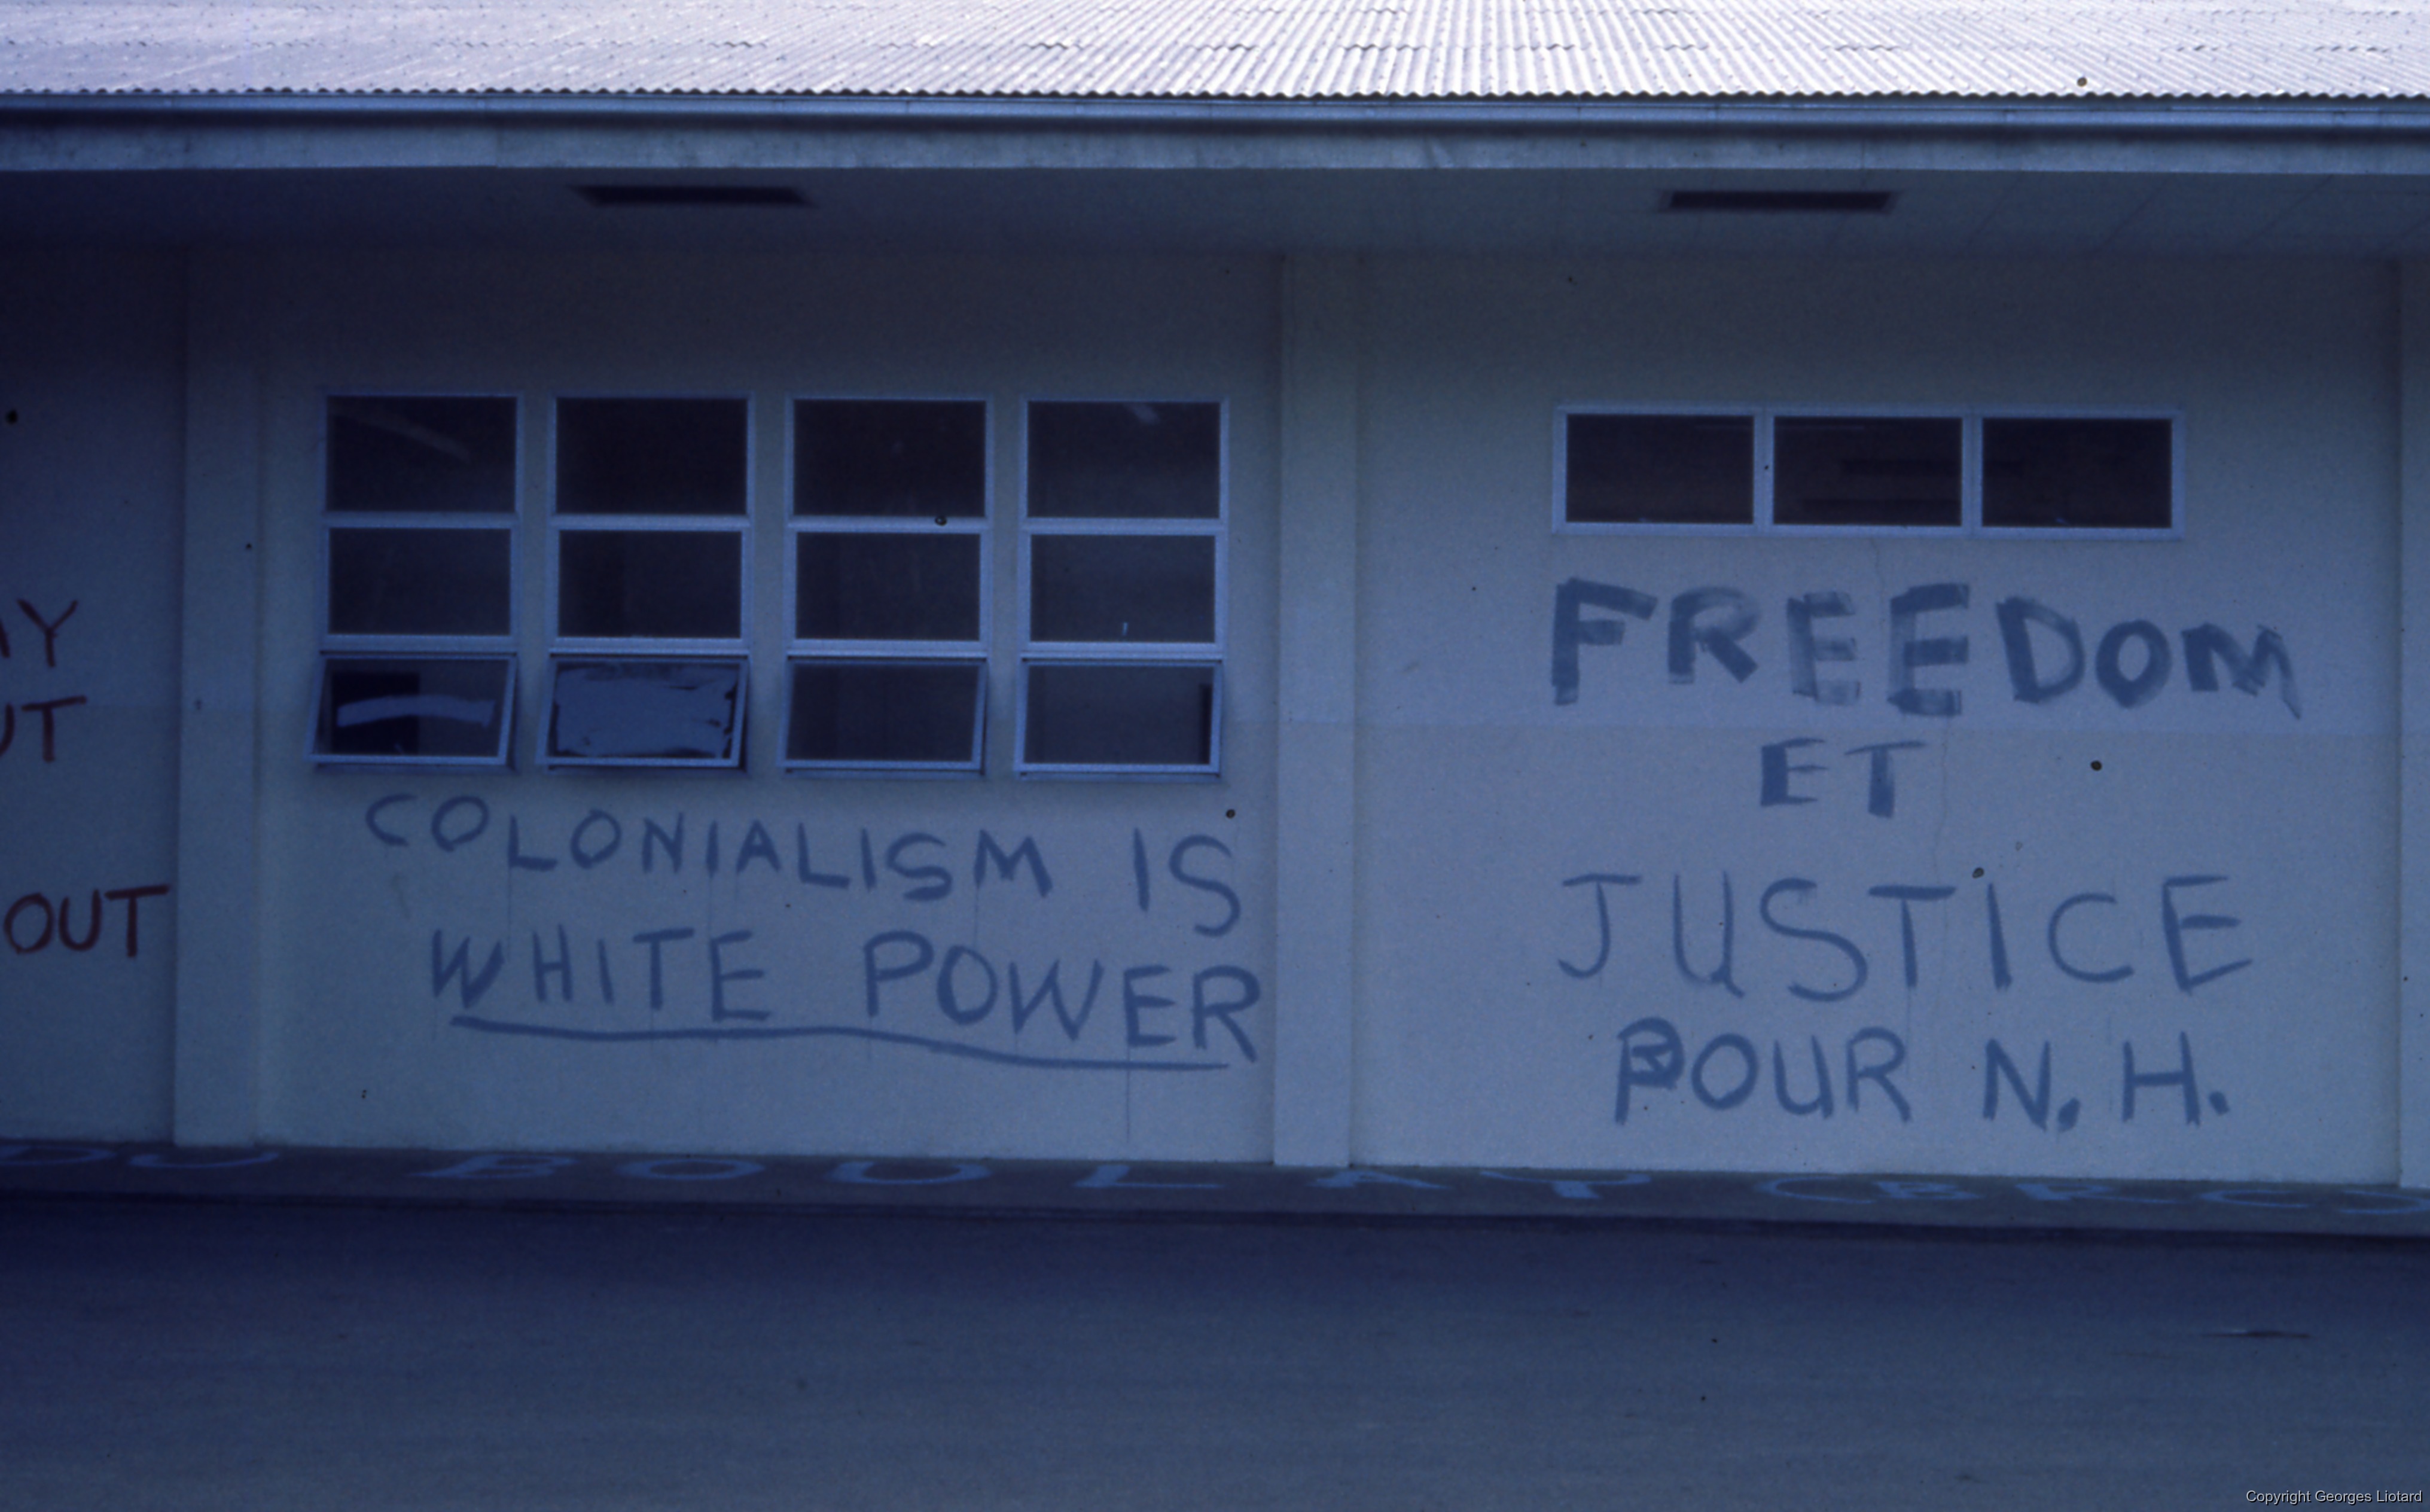 COLONIALISM IS
WHITE POWER
FREEDOM
ET
JUSTICE
POUR N.H.
OUT
DU BOULAY
Copyright Georges Liotard